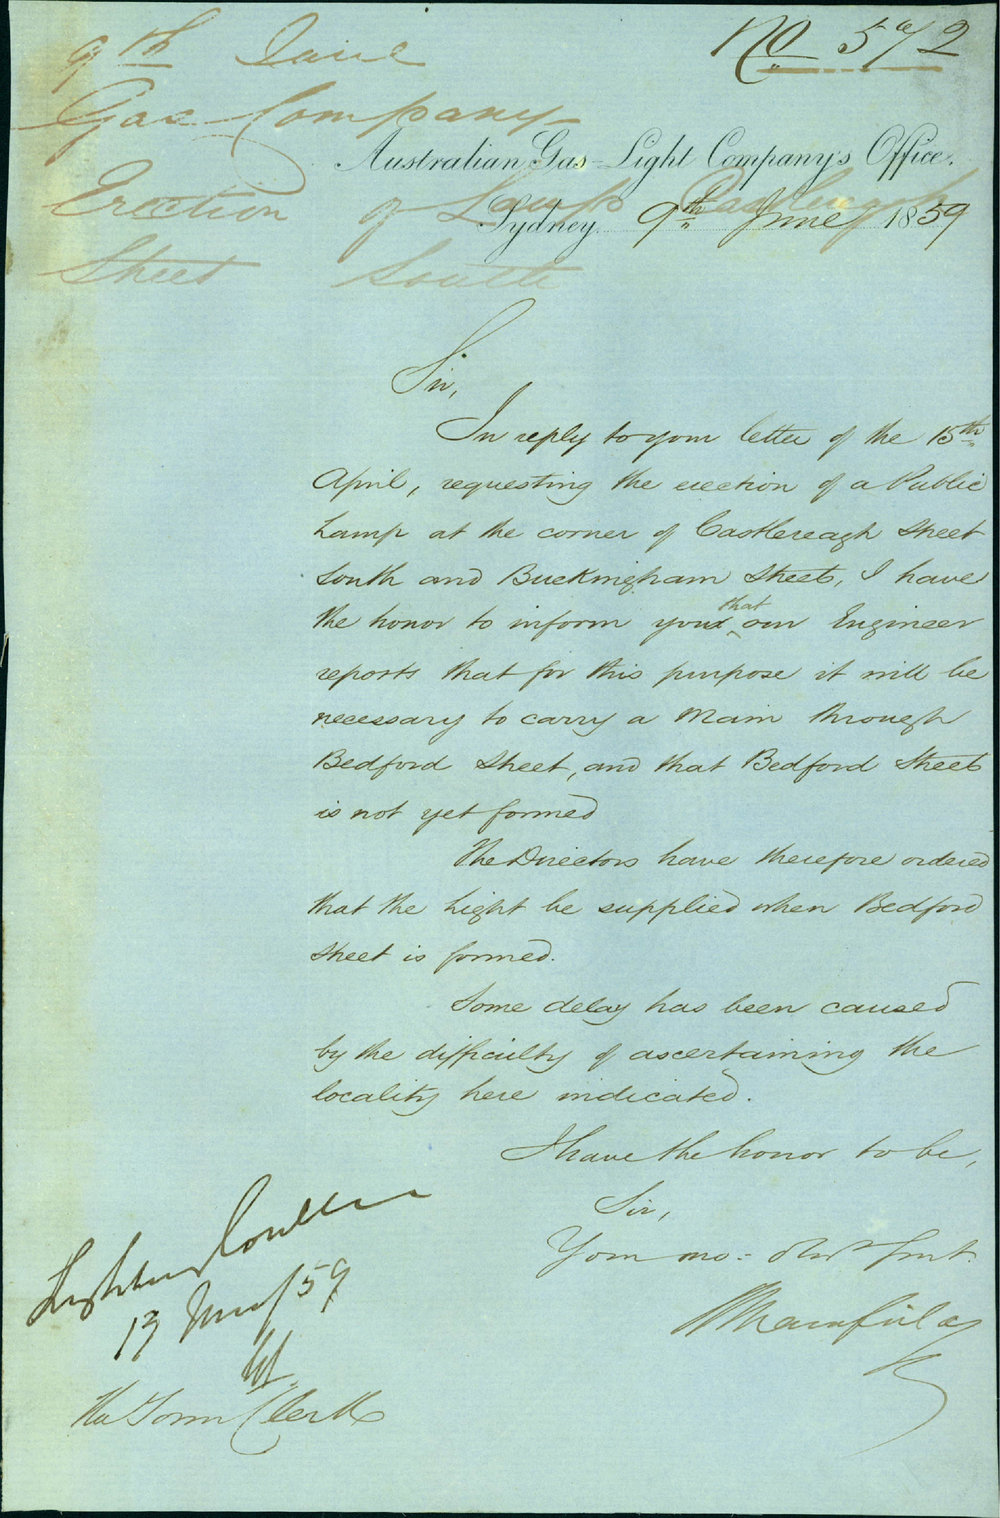 9th June
No 572
Gas Company
Australian Gas-Light Company's Office.
Erection of Lamp Castlereagh
Sydney 9th June 1859
Street South
Sir,
In reply to your letter of the 15th
April, requesting the erection of a Public
Lamp at the corner of Castlereagh Street
South and Buckingham Street, I have
the honor to inform you that our Engineer
reports that for this purpose it will be
necessary to carry a Main through
Bedford Street, and that Bedford Street
is not yet formed
The Directors have therefore ordered
that the Light be supplied when Bedford
Street is formed.
Some delay has been caused
by the difficulty of ascertaining the
locality here indicated.
I have the honor to be,
Sir,
Your mo: obdt Servt.
Lighting Comttee
13 /59
The Town Clerk